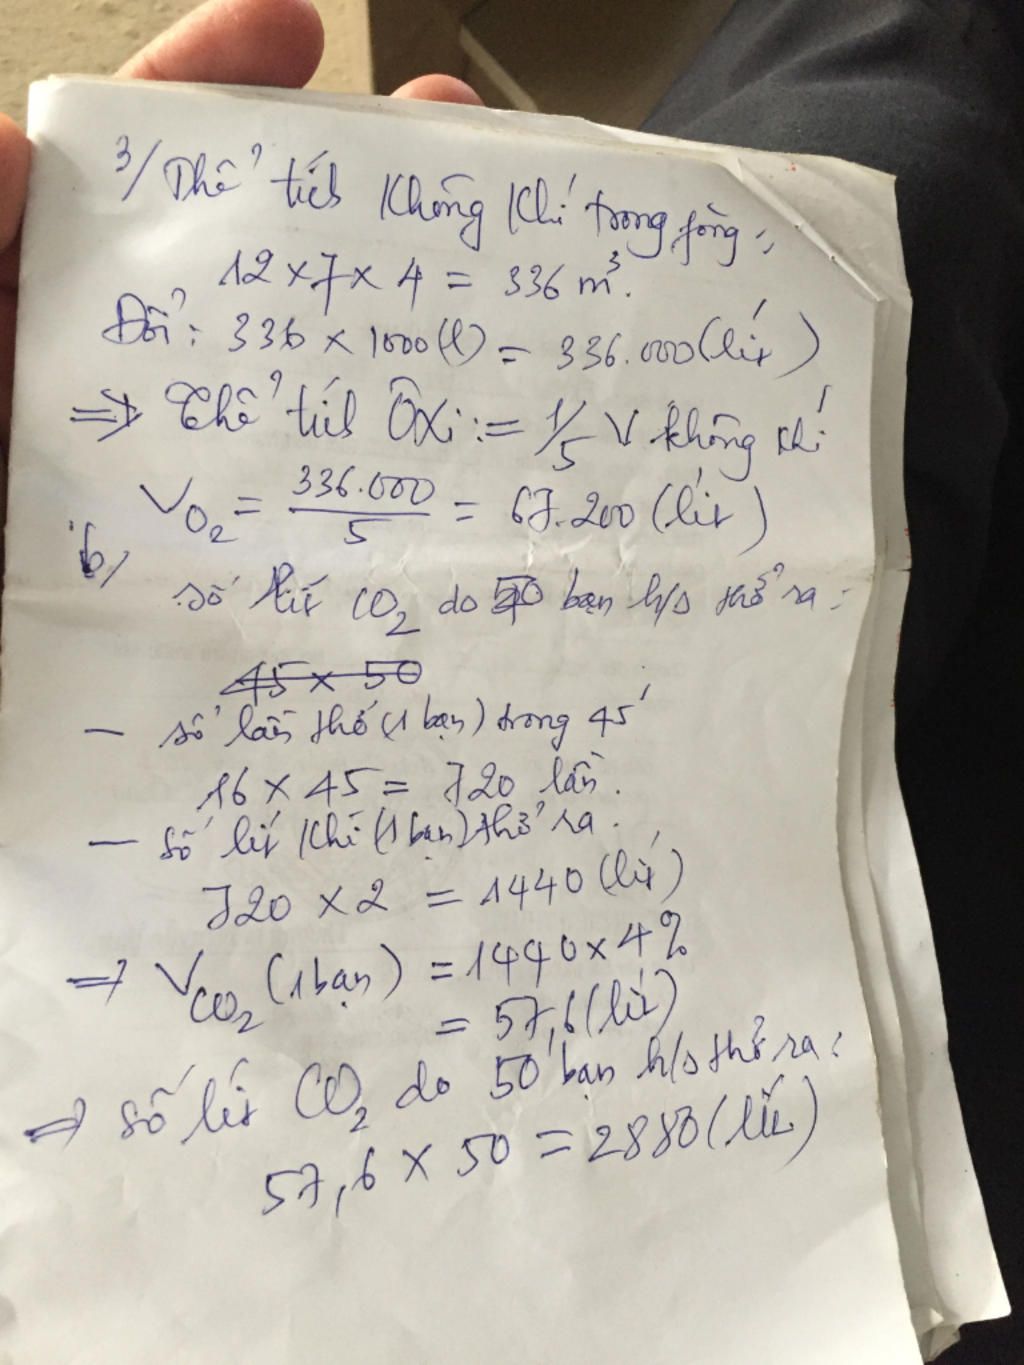 3/ Thể tích không khí trong phòng:
12 x 7 x 4 = 336 m³.
Đổi: 336 x 1000 (l) = 336.000 (lít)
=> Thể tích Ôxi: = 1/5 V không khí
V O₂ = 336.000 / 5 = 67.200 (lít)
b/
số lít CO₂ do 50 bạn h/s thở ra:
45 x 50
— số lần thở (1 bạn) trong 45'
16 x 45 = 720 lần.
— số lít khí (1 bạn) thở ra.
720 x 2 = 1440 (lít)
=> V CO₂ (1 bạn) = 1440 x 4%
= 57,6 (lít)
=> số lít CO₂ do 50 bạn h/s thở ra:
57,6 x 50 = 2880 (lít)